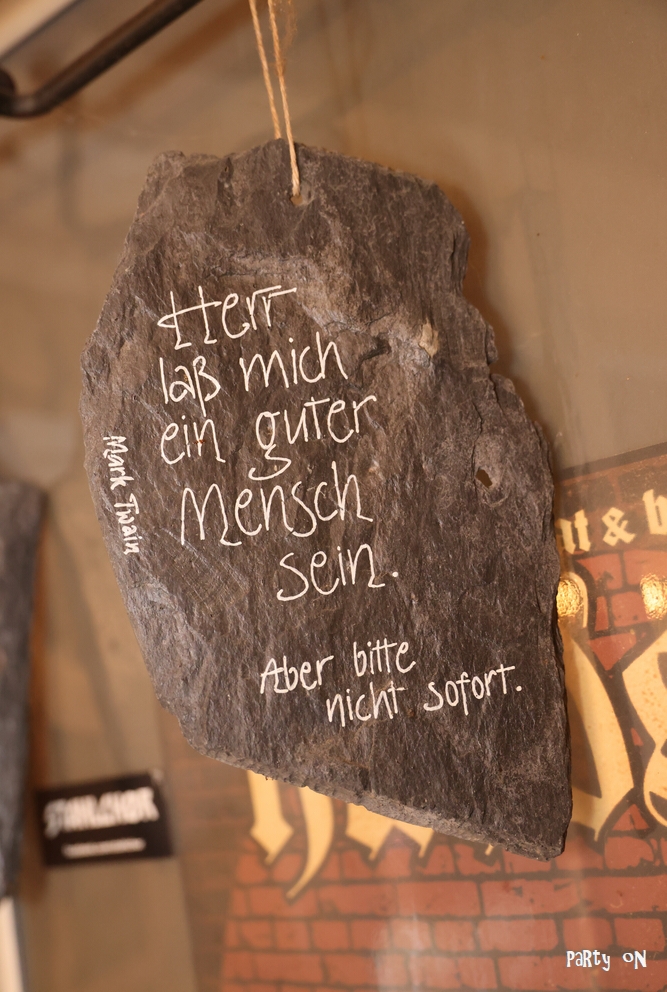 Herr
laß mich
ein guter
Mensch
sein.
Aber bitte
nicht sofort.
Mark Twain
Party ON